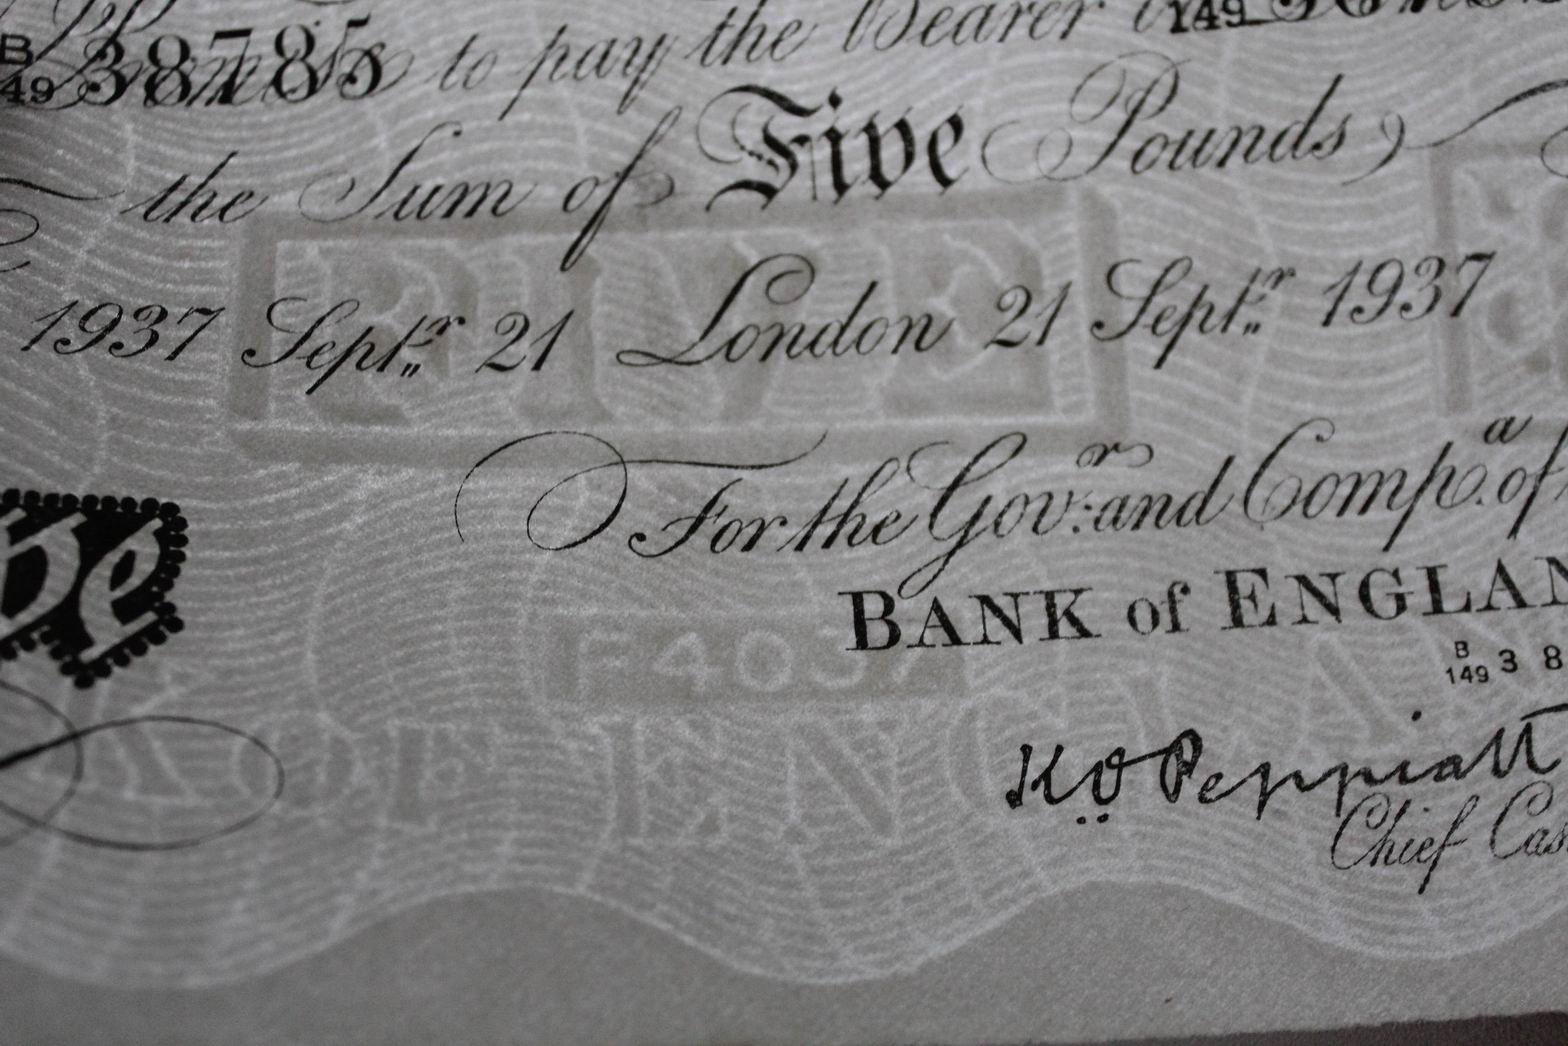 B/49 38785 to pay the Bearer
the Sum of Five Pounds
FIVE
1937 Septr 21 London 21 Septr 1937
For the Govr: and Compa. of
BANK of ENGLAN
B/149 3 8
K O Peppiatt
Chief Cas